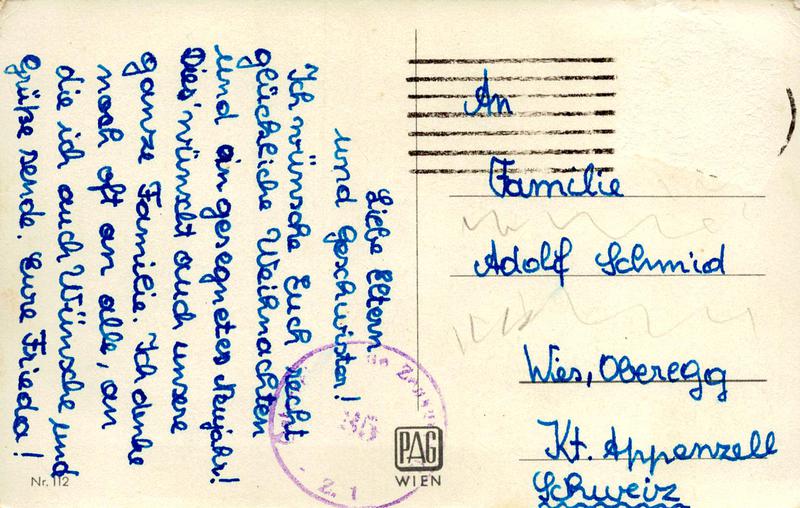 Liebe Eltern
und Geschwister!
Ich wünsche Euch recht
glückliche Weihnachten
und ein gesegnetes Neujahr!
Dies wünscht auch unsere
ganze Familie. Ich denke
noch oft an alle, an
die ich auch Wünsche und
Grüße sende. Eure Frieda!
An
Familie
Adolf Schmid
Wies, Oberegg
Kt. Appenzell
Schweiz
35
2. 1
PAG
WIEN
Nr. 112